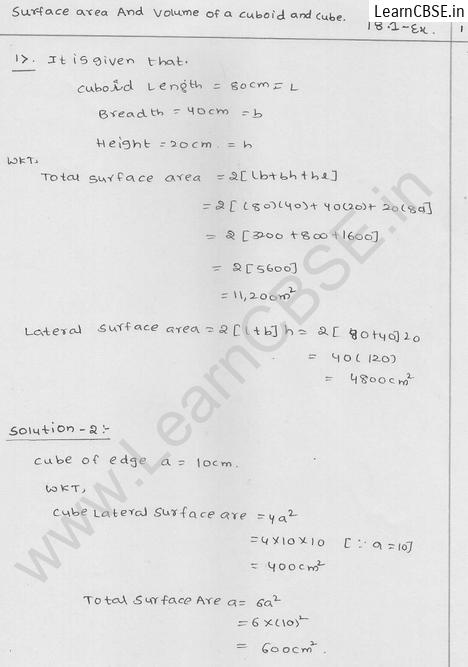 LearnCBSE.in
Surface area And Volume of a cuboid and cube.
18.1-Ex.
1
1>. It is given that.
cuboid Length = 80cm = L
Breadth = 40cm = b
Height = 20cm. = h
WKT,
Total surface area = 2[lb+bh+hl]
= 2[(80)(40)+40(20)+20(80]
= 2[3200+800+1600]
= 2[5600]
= 11,200cm²
Lateral surface area = 2[l+b]h = 2[80+40]20
= 40(120)
= 4800cm²
Solution-2:-
cube of edge a = 10cm.
WKT,
Cube Lateral Surface are = 4a²
= 4×10×10 [∵ a=10]
= 400cm²
Total Surface Are a = 6a²
= 6×(10)²
= 600cm².
www.LearnCBSE.in